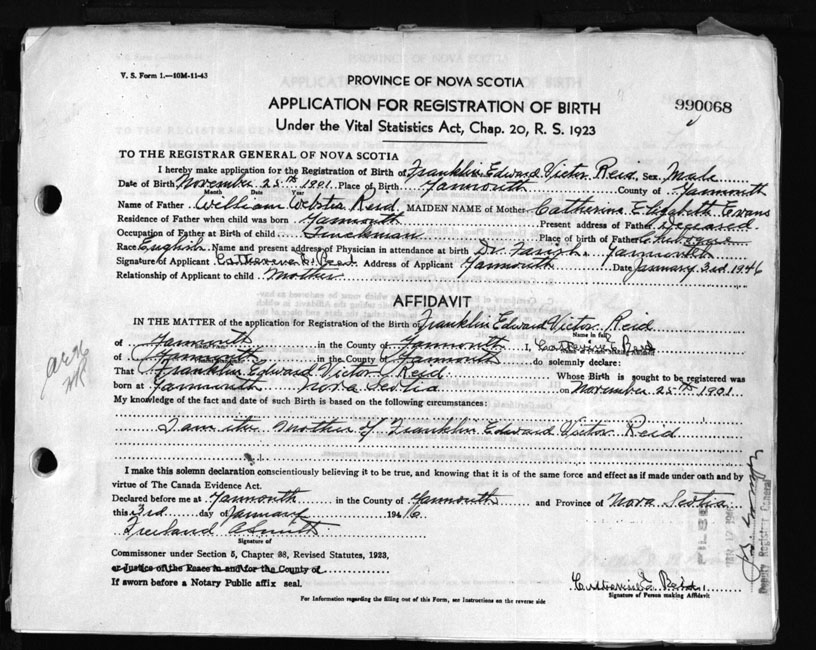 V. S. Form 1.—10M-11-43
PROVINCE OF NOVA SCOTIA
APPLICATION FOR REGISTRATION OF BIRTH
990068
Under the Vital Statistics Act, Chap. 20, R. S. 1923
TO THE REGISTRAR GENERAL OF NOVA SCOTIA
I hereby make application for the Registration of Birth of Franklin Edward Victor Reid Sex Male
Date of Birth November 25th 1901 Place of Birth Yarmouth County of Yarmouth
Month Date Year
Name of Father William Webster Reid MAIDEN NAME of Mother Catherine Elizabeth Evans
Residence of Father when child was born Yarmouth Present address of Father Deceased
Occupation of Father at Birth of child Truckman Place of birth of Father
Race English Name and present address of Physician in attendance at birth Dr. Farish Yarmouth
Signature of Applicant Catherine E. Reid Address of Applicant Yarmouth Date January 3rd 1946
Relationship of Applicant to child Mother
AFFIDAVIT
IN THE MATTER of the application for Registration of the Birth of Franklin Edward Victor Reid
Name in full
of Yarmouth in the County of Yarmouth I, Catherine E Reid
of Yarmouth in the County of Yarmouth do solemnly declare:
That Franklin Edward Victor Reid Whose Birth is sought to be registered was
born at Yarmouth Nova Scotia on November 25th 1901
My knowledge of the fact and date of such Birth is based on the following circumstances:
I am the Mother of Franklin Edward Victor Reid
I make this solemn declaration conscientiously believing it to be true, and knowing that it is of the same force and effect as if made under oath and by
virtue of The Canada Evidence Act.
Declared before me at Yarmouth in the County of Yarmouth and Province of Nova Scotia
this 3rd day of January 1946
Freeland A Smith
Signature of
Commissioner under Section 5, Chapter 38, Revised Statutes, 1923,
or Justice of the Peace in and for the County of
If sworn before a Notary Public affix seal.
Catherine E. Reid
Signature of Person making Affidavit
For Information regarding the filling out of this Form, see Instructions on the reverse side
FILED
Deputy Registrar General